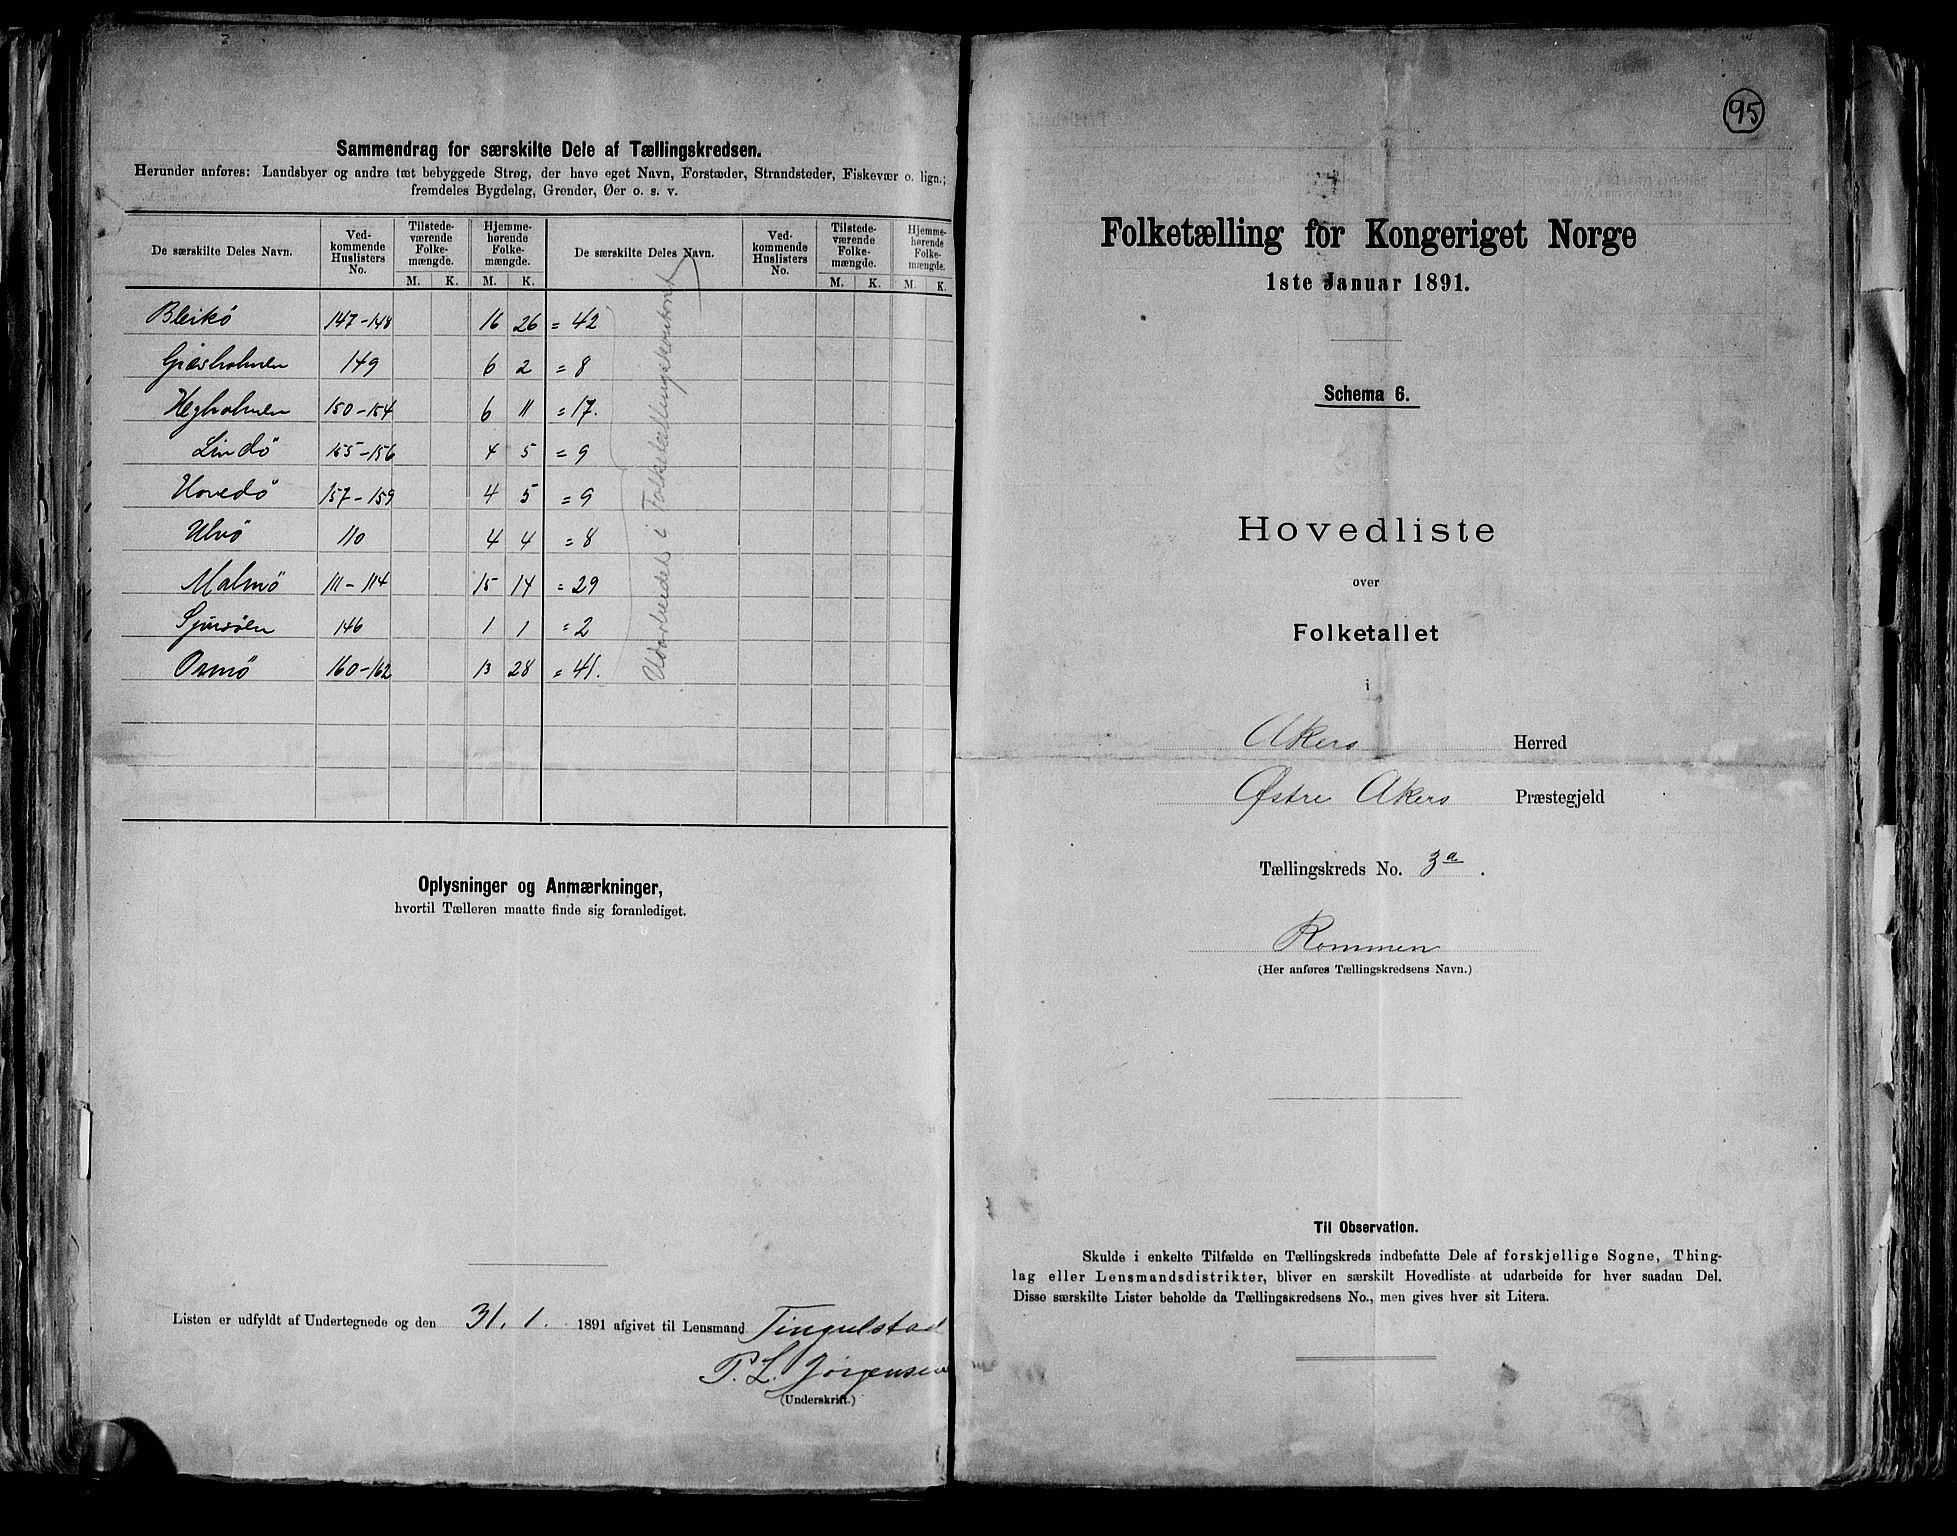 Sammendrag for særskilte Dele af Tællingskredsen.
Herunder anføres: Landsbyer og andre tæt bebyggede Strøg, der have eget Navn, Forstæder, Strandsteder, Fiskevær o. lign.;
fremdeles Bygdelag, Grender, Øer o. s. v.
De særskilte Deles Navn. Ved-kommende Huslisters No. Tilstede-værende Folke-mængde. Hjemme-hørende Folke-mængde. De særskilte Deles Navn. Ved-kommende Huslisters No. Tilstede-værende Folke-mængde. Hjemme-hørende Folke-mængde.
M. K. M. K. M. K. M. K.
Bleikö 147-148 16 26 = 42
Græsholmen 149 6 2 = 8
Hegholmen 150-154 6 11 = 17.
Lindö 155-156 4 5 = 9
Hovedö 157-159 4 5 = 9
Ulvö 110 4 4 = 8
Malmö 111-114 15 14 = 29
146 1 1 = 2
Ormö 160-162 13 28 = 41.
Udarbeidet i Folketællingskontoret
Oplysninger og Anmærkninger,
hvortil Tælleren maatte finde sig foranlediget.
Listen er udfyldt af Undertegnede og den 31. 1. 1891 afgivet til Lensmand Tingulstad
P. L. Jörgensen
(Underskrift.)
95
Folketælling for Kongeriget Norge
1ste Januar 1891.
Schema 6.
Hovedliste
over
Folketallet
i
Akers Herred
Østre Akers Præstegjeld
Tællingskreds No. 3a.
Rommen
(Her anføres Tællingskredsens Navn.)
Til Observation.
Skulde i enkelte Tilfælde en Tællingskreds indbefatte Dele af forskjellige Sogne, Thing-
lag eller Lensmandsdistrikter, bliver en særskilt Hovedliste at udarbeide for hver saadan Del.
Disse særskilte Lister beholde da Tællingskredsens No., men gives hver sit Litera.